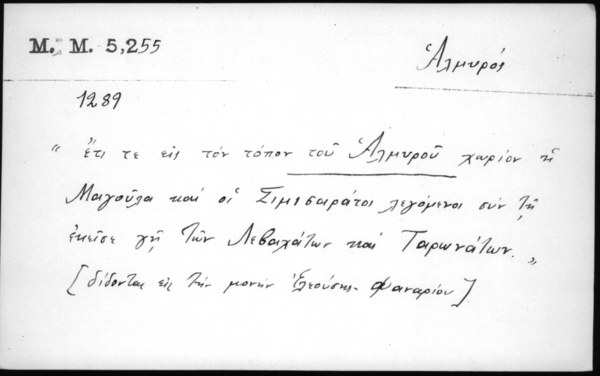 M. M. 5,255
Ἁλμυρός
1289
" ἔτι τε εἰς τὸν τόπον τοῦ Ἁλμυροῦ χωρίον ἡ
Μαγούλα καὶ οἱ Σιμισαράτοι λεγόμενοι σὺν τῇ
ἐκεῖσε γῇ τῶν Λεβαχάτων καὶ Ταρωνάτων. "
[δίδονται εἰς τὴν μονὴν Ἐλεούσης Φαναρίου]